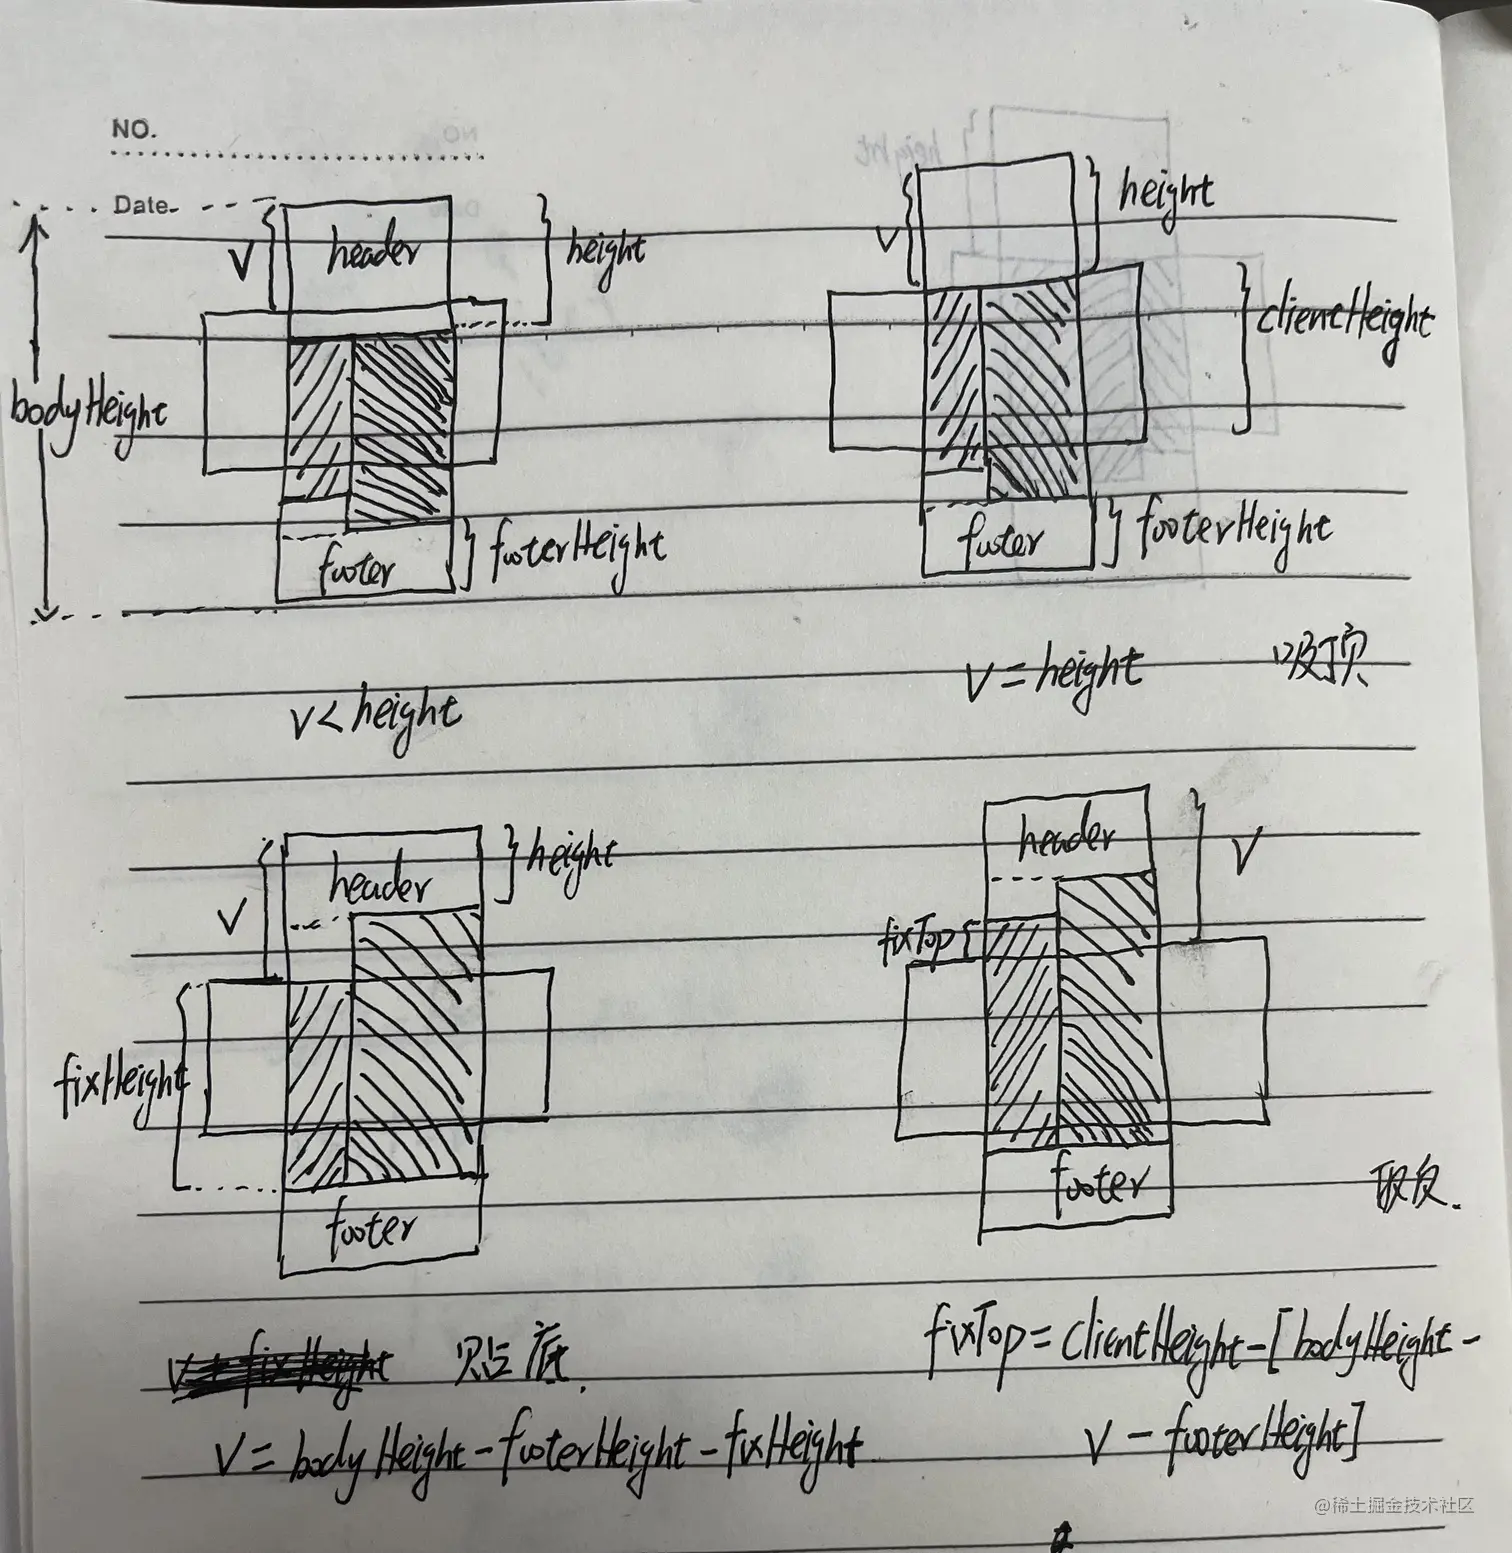 NO.
Date
V
header
height
bodyHeight
footer
footerHeight
V < height
V
height
clientHeight
footer
footerHeight
V = height
吸顶
V
header
height
fixHeight
footer
贴底
V = bodyHeight - footerHeight - fixHeight
header
V
fixTop
footer
取反.
fixTop = clientHeight - [bodyHeight -
V - footerHeight]
@稀土掘金技术社区